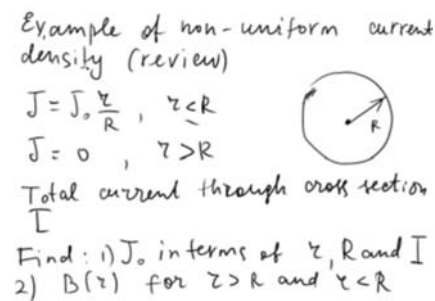 Example of non-uniform current
density (review)
J = J₀ r/R , r ≤ R
J = 0 , r > R
R
Total current through cross section
I
Find: 1) J₀ in terms of r, R and I
2) B(r) for r > R and r < R